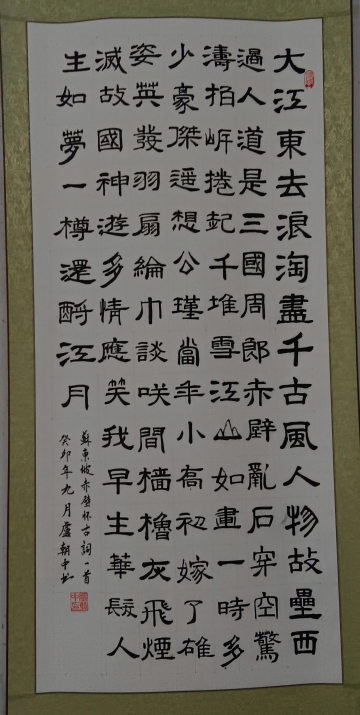 大江東去浪淘盡千古風人物故壘西
過人道是三國周郎赤壁亂石穿空驚
濤拍岍捲起千堆雪江山如畫一時多
少豪傑遥想公瑾當年小喬初嫁了雄
姿英發羽扇綸巾談咲間檣櫓灰飛煙
滅故國神遊多情應笑我早生華髮人
生如夢一樽還酹江月
蘇東坡赤壁怀古詞一首
癸卯年九月盧朝中书